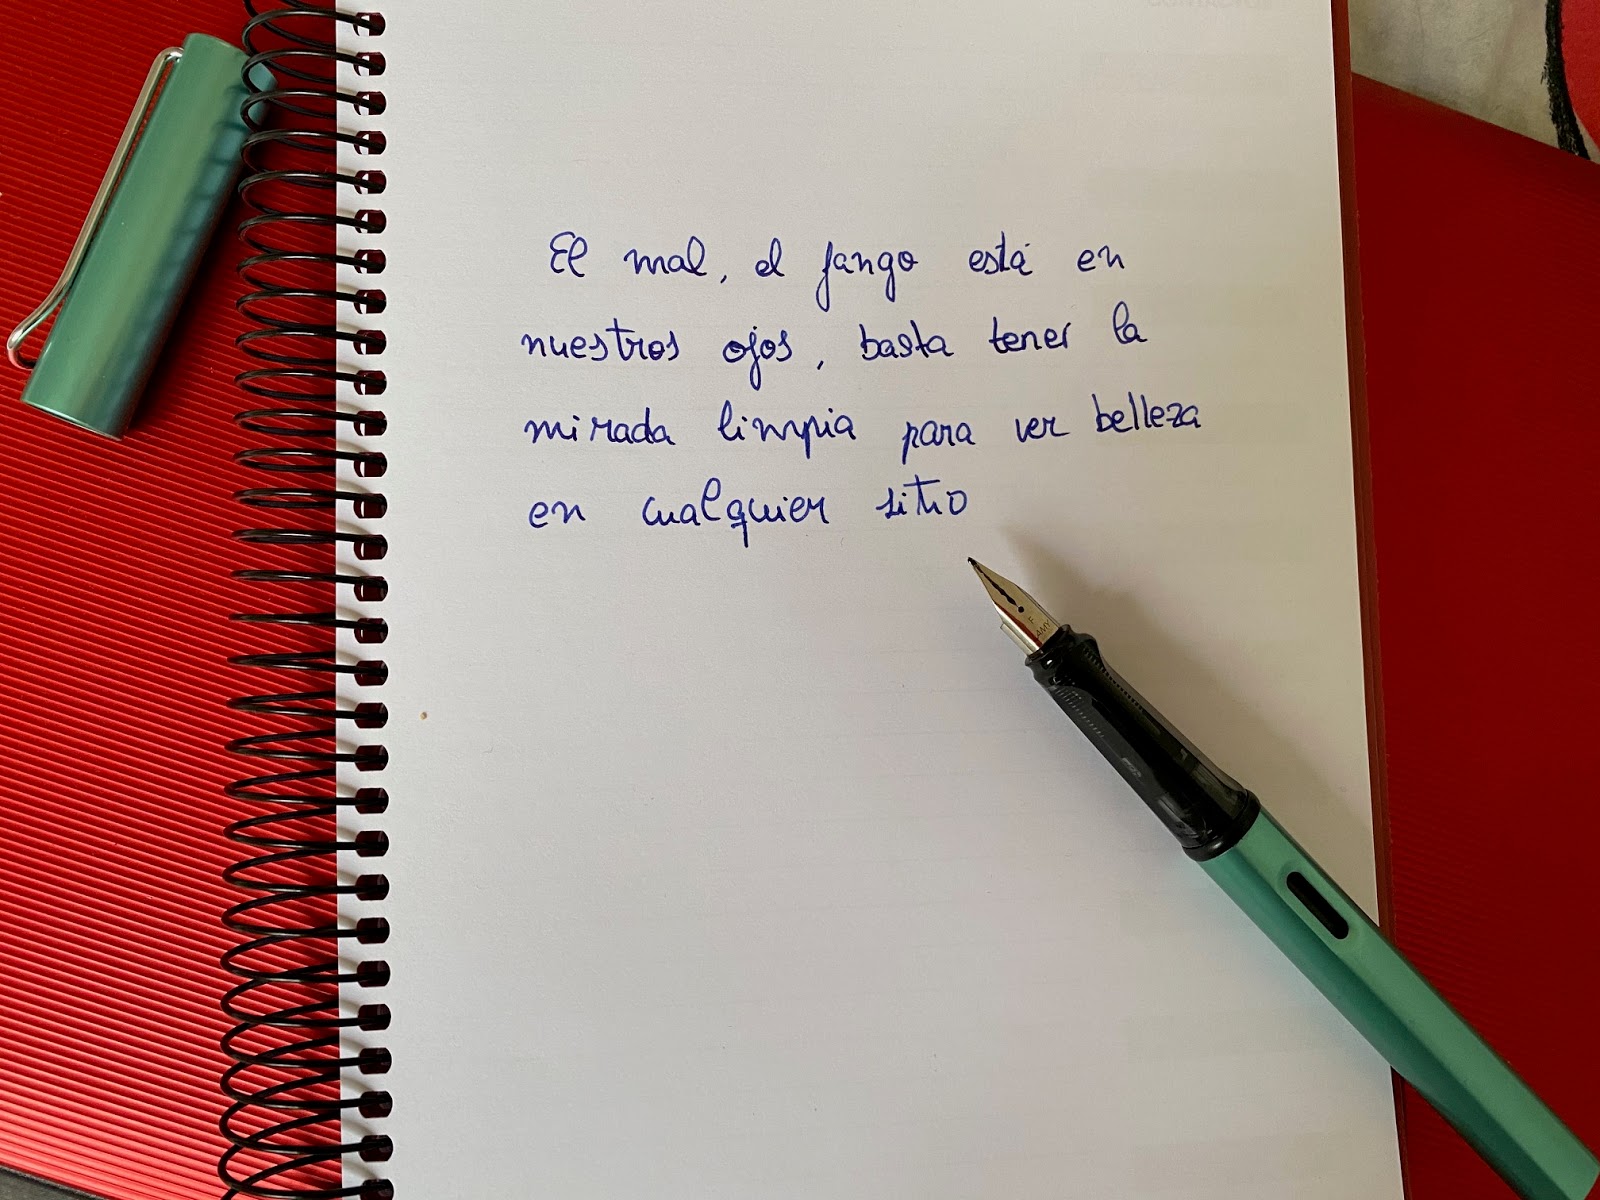 El mal, el fango está en
nuestros ojos, basta tener la
mirada limpia para ver belleza
en cualquier sitio
F
LAMY